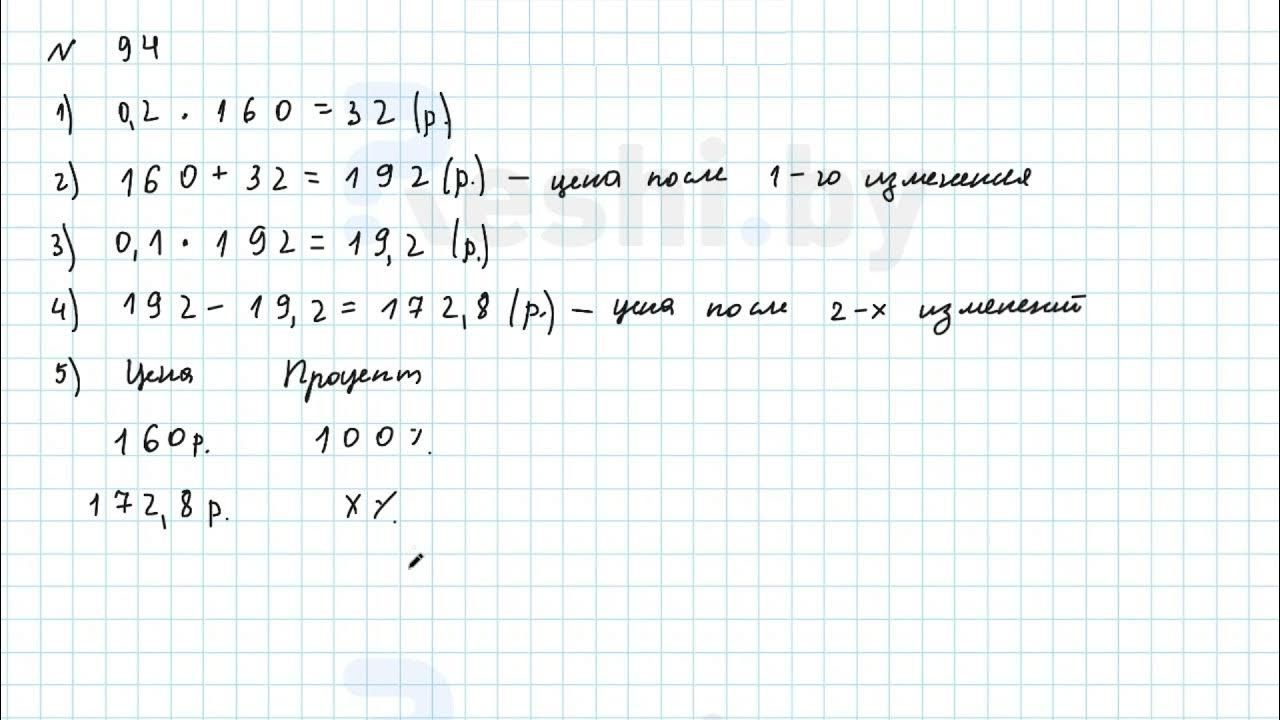 N 94
1) 0,2 · 160 = 32 (р.)
2) 160 + 32 = 192 (р.) – цена после 1-го изменения
3) 0,1 · 192 = 19,2 (р.)
4) 192 - 19,2 = 172,8 (р.) – цена после 2-х изменений
5) Цена Процент
160 р. 100 %
172,8 р. х %
Reshi.by